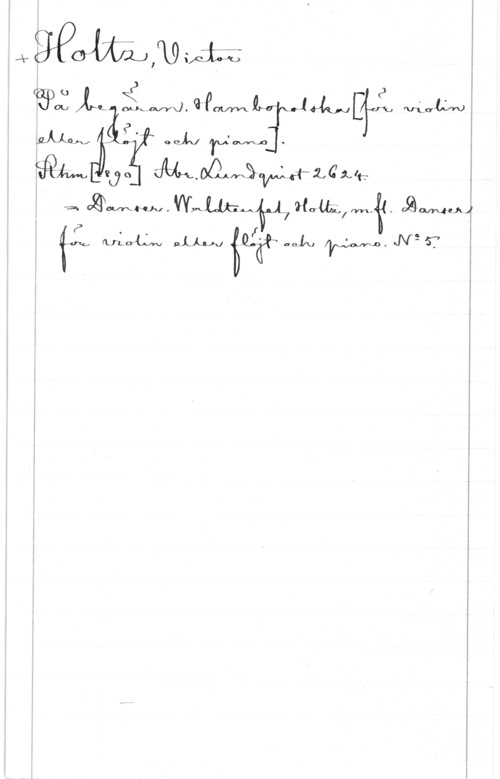 + Holtz, Victor
På begäran. Hambopolska [för violin
eller flöjt och piano].
Sthm [1890] Abr. Lundquist 2624.
= Danser. Waldteufel, Holtz, m.fl. Danser
för violin eller flöjt och piano. Nº 5.